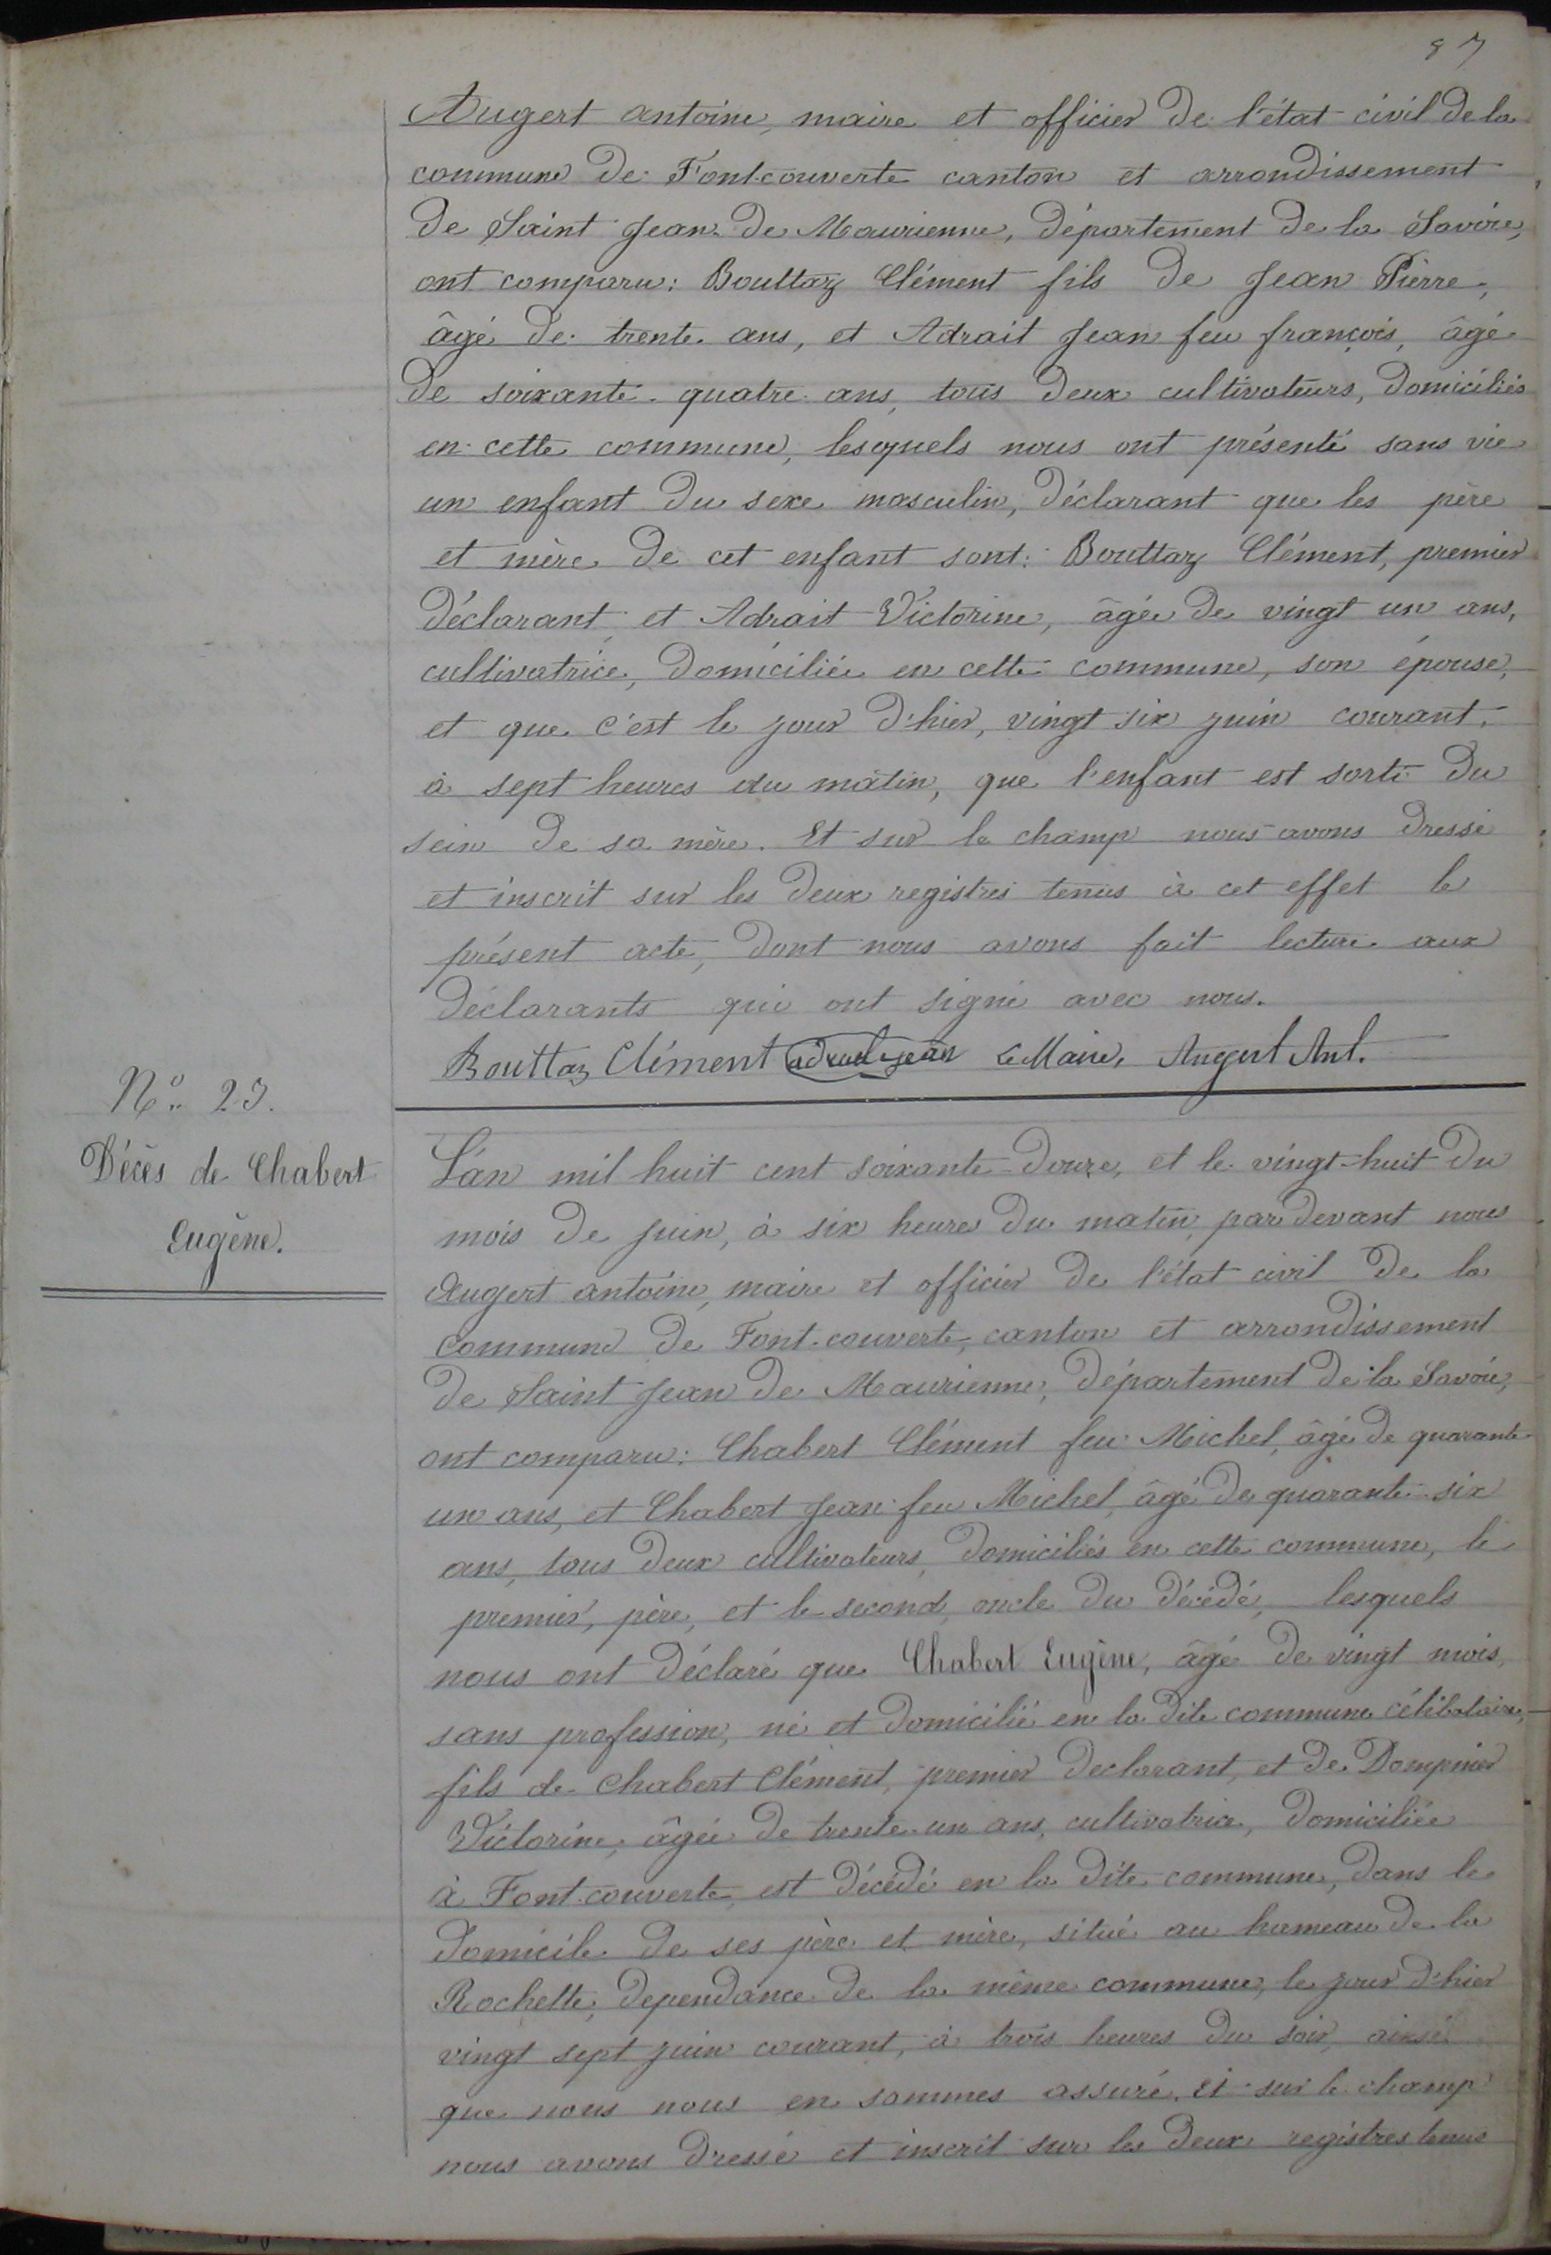 87
Augert antoine, maire et officier de l'état civil de la
commune de Font-couverte canton et arrondissement
de Saint Jean de Maurienne, département de la Savoie,
ont comparu : Bouttaz Clément fils de Jean Pierre,
âgé de trente ans, et Adrait Jean feu françois, âgé
de soixante quatre ans, tous deux cultivateurs, domiciliés
en cette commune, lesquels nous ont présenté sans vie
un enfant du sexe masculin, déclarant que les père
et mère de cet enfant sont : Bouttaz Clément, premier
déclarant et Adrait Victorine, âgée de vingt un ans,
cultivatrice, domiciliée en cette commune, son épouse,
et que c'est le jour d'hier, vingt six juin courant,
à sept heures du matin, que l'enfant est sorti du
sein de sa mère. Et sur le champ nous avons dressé
et inscrit sur les deux registres tenus à cet effet le
présent acte, dont nous avons fait lecture aux
déclarants qui ont signé avec nous.
Bouttaz Clément adrait jean Le Maire, Augert Ant.
N° 23.
Décès de Chabert
Eugène.
L'an mil huit cent soixante-douze, et le vingt-huit du
mois de juin, à six heures du matin, par devant nous
Augert antoine, maire et officier de l'état civil de la
commune de Font-couverte, canton et arrondissement
de Saint Jean de Maurienne, département de la Savoie,
ont comparu : Chabert Clément feu Michel, âgé de quarante
un ans, et Chabert Jean feu Michel, âgé de quarante-six
ans, tous deux cultivateurs, domiciliés en cette commune, le
premier, père, et le second, oncle du décédé, lesquels
nous ont déclaré que Chabert Eugène, âgé de vingt mois,
sans profession, né et domicilié en la dite commune célibataire,
fils de Chabert Clément, premier declarant, et de Dompnier
Victorine, âgée de trente-un ans, cultivatrice, domiciliée
à Font-couverte, est décédé en la dite commune, dans le
domicile de ses père et mère, situé au hameau de la
Rochette, dependance de la même commune, le jour d'hier
vingt sept juin courant, à trois heures du soir, ainsi
que nous nous en sommes assuré. Et sur le champ
nous avons dressé et inscrit sur les deux registres tenus